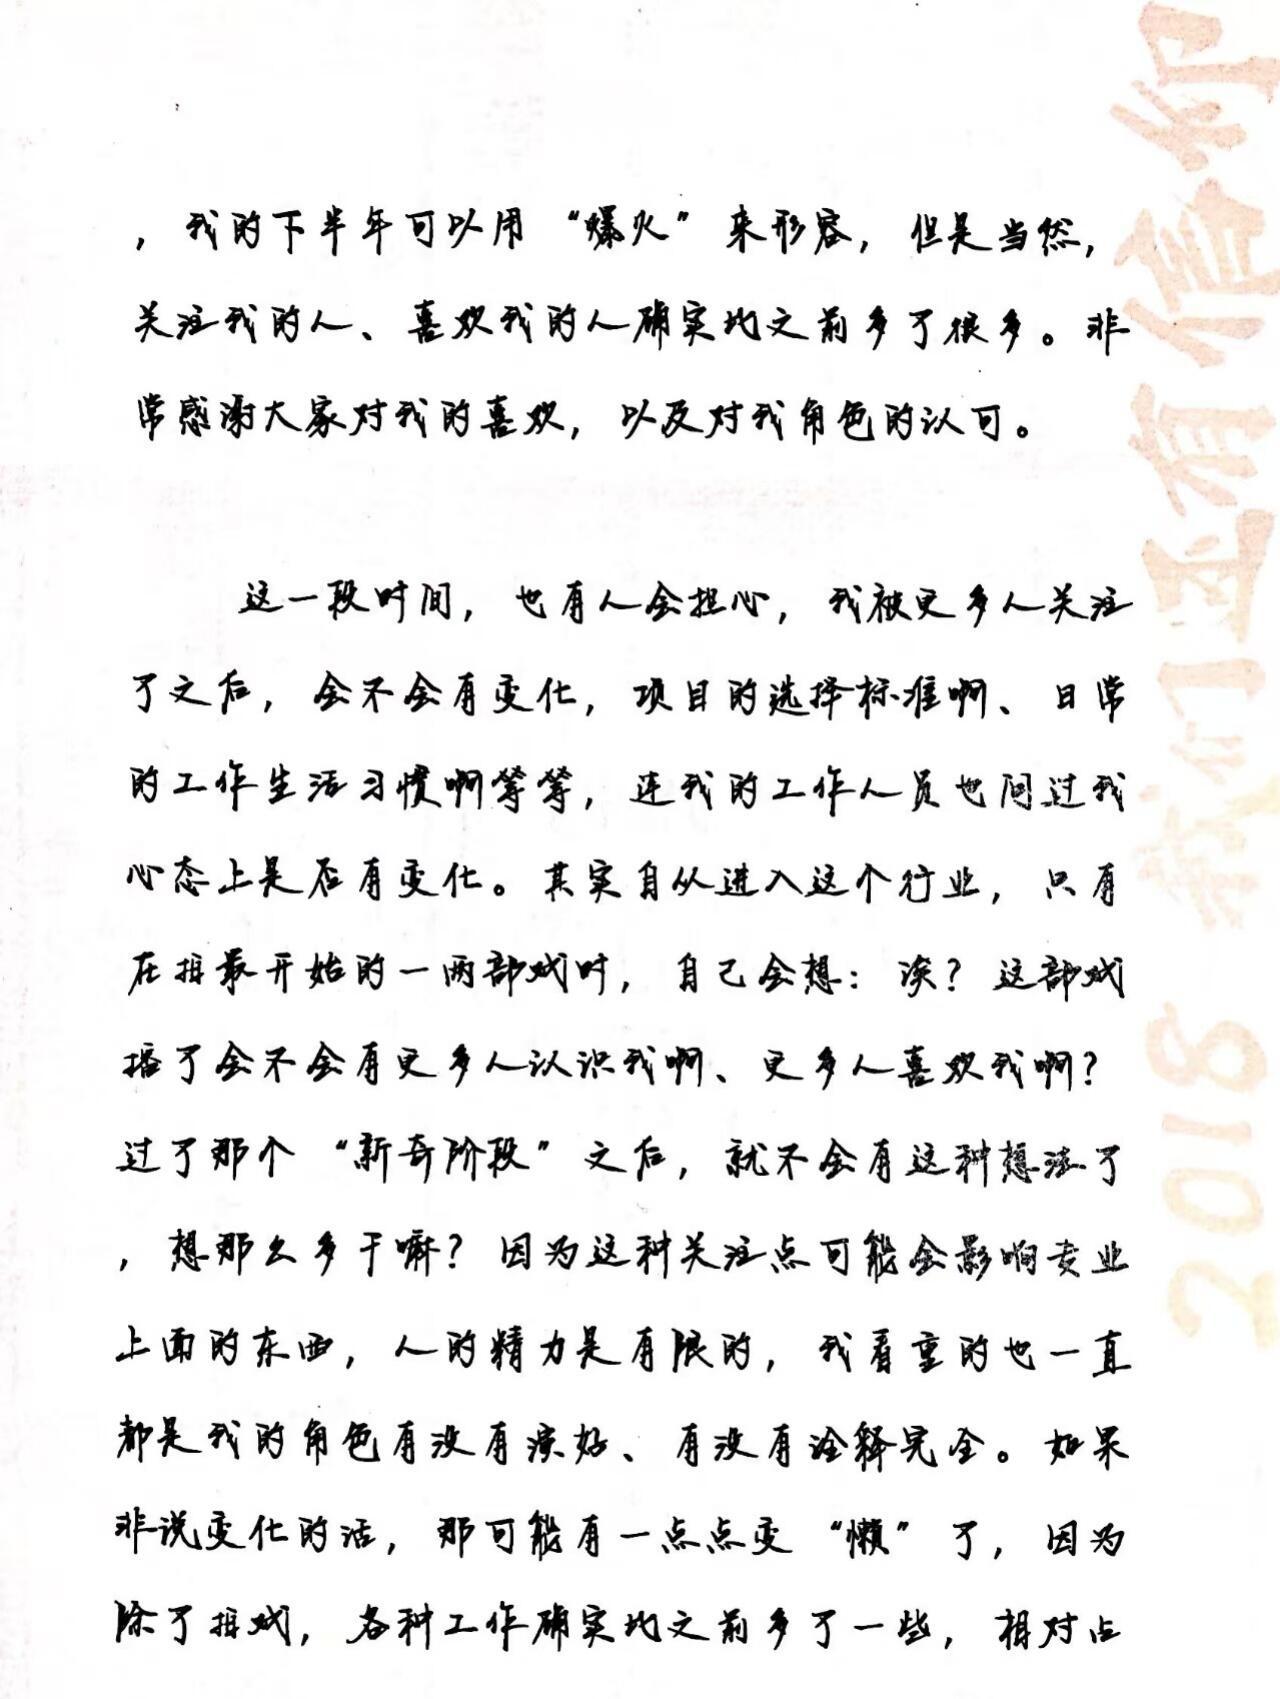 ，我的下半年可以用“爆火”来形容，但是当然，
关注我的人、喜欢我的人确实比之前多了很多。非
常感谢大家对我的喜欢，以及对我角色的认可。
这一段时间，也有人会担心，我被更多人关注
了之后，会不会有变化，项目的选择标准啊、日常
的工作生活习惯啊等等，连我的工作人员也问过我
心态上是否有变化。其实自从进入这个行业，只有
在拍最开始的一两部戏时，自己会想：诶？这部戏
播了会不会有更多人认识我啊、更多人喜欢我啊？
过了那个“新奇阶段”之后，就不会有这种想法了
，想那么多干嘛？因为这种关注点可能会影响专业
上面的东西，人的精力是有限的，我看重的也一直
都是我的角色有没有演好、有没有诠释完全。如果
非说变化的话，那可能有一点点变“懒”了，因为
除了拍戏，各种工作确实比之前多了一些，相对占
2018 我们还有信仰